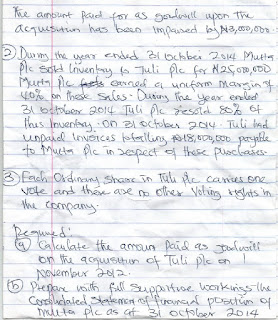 The amount paid for as goodwill upon the
acquisition has been impaired by ₦3,000,000.
② During the year ended 31 October 2014 Mutta
Plc sold Inventory to Tuli Plc for ₦25,000,000
Mutta plc earned a uniform margin of
40% on these sales. During the year ended
31 october 2014 Tuli Plc resold 80% of
this inventory. On 31 october 2014. Tuli had
unpaid invoices totalling ₦18,000,000 payable
to Mutta Plc in respect of these purchases.
③ Each Ordinary share in Tuli plc carries one
vote and there are no other Voting rights in
the company.
Required:
ⓐ Calculate the amount Paid as goodwill
on the acquisition of Tuli Plc on 1
November 2012.
ⓑ Prepare with full supportive workings the
Consolidated statement of financial position of
Mutta plc as at 31 october 2014